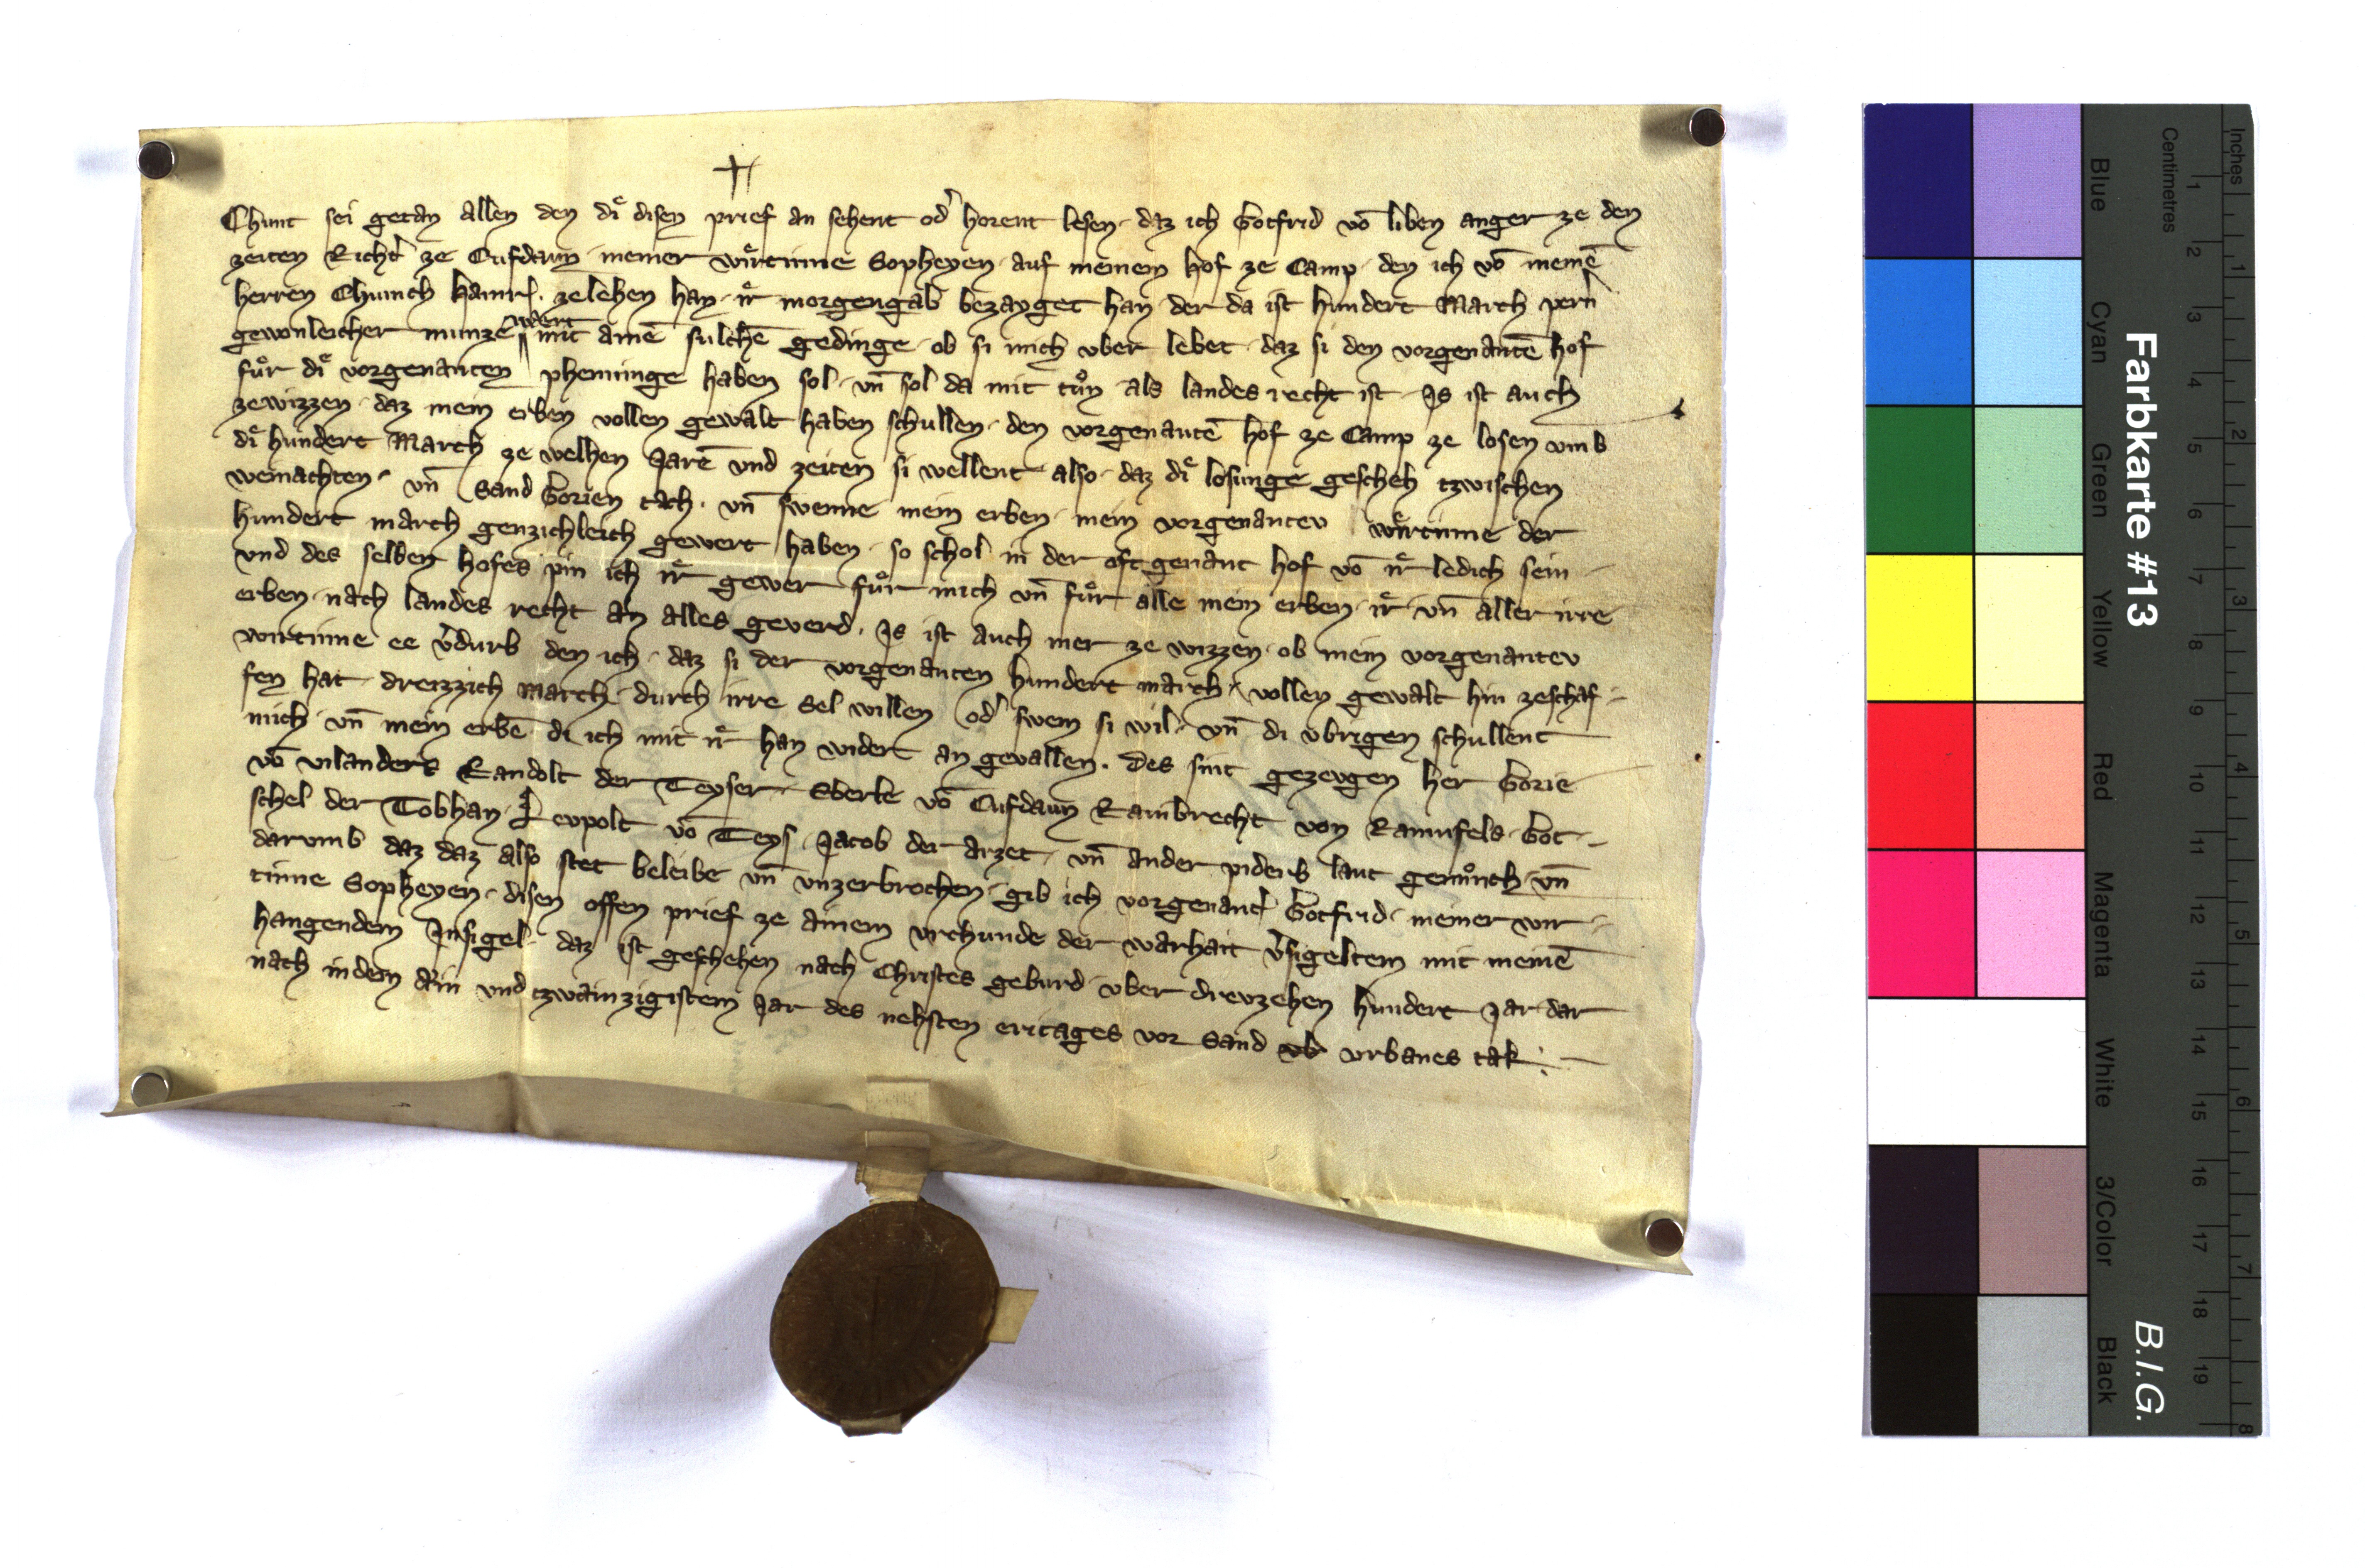 Chunt sei getan allen den diͤ disen prief an sehent od' horent lesen · daz ich Gotfrid vō liben anger ze den
zeiten Richt' ze Cufdaun · meiner wiͤrtinne Sopheyen · auf meinem hof ze Camp · den ich vō meinē
herren Chunich Hainr. zelehen han · iͤr morgengab bezayget han · der da ist hundert March pern'
gewonleicher munze wert mit ainē sulchē gedinge · ob si mich vber lebet · daz si den vorgenantē hof
fuͤr diͤ vorgenanten phenninge haben sol · vn̄ sol da mit tuͦn als landes recht ist · Js ist auch
zewizzen · daz mein erben vollen gewalt haben schullen · den vorgenantē hof ze Camp ze losen vmb
diͤ hundert March ze welhen Jarē vnd zeiten si wellent · also · daz diͤ losunge gescheh tzwischen
weinachten · vn̄ Sand Gorien tach · vn̄ swenne mein erben · mein vorgenantev wiͤrtinne der
hundert march genzichleich gewert haben · so schol in der oft genant hof vō iͤr ledich sein
vnd des selben hofes pin ich iͤr gewer fuͤr mich vn̄ fuͤr alle mein erben · iͤr · vn̄ aller irre
erben · nach landes recht an alles geverd · Js ist auch mer ze wizzen · ob mein vorgenantev
wirtinne ee v'durb den ich · daz si der vorgenanten hundert march · vollen gewalt hin zeschaf
fen hat · dreizzich march · durch irre sel willen od' swem si wil · vn̄ di vbrigen schullent
mich · vn̄ mein erbē di ich mit iͤr han widert an gevallen · Des sint gezevgen her Gorie
vō vilanders Randolt der Teyser · Eberle vō Cufdaun Rambrecht von Ramnfels · Got
schel der Tobhan · Levpolt vō Teys · Jacob der arzet · vn̄ ander piderb laut genuͦch · vn̄
darvmb daz daz also stet beleibe vn̄ vnzerbrochen · gib ich vorgenant' Gotfrid · meiner wir
tinne Sopheyen · disen offen prief ze ainem vrchunde der warhait v'sigeltem mit meinē
hangendem Jnsigel · daz ist geschehen nach Christes geburd · vber drevzehen hundert Jar dar
nach in dem ain vnd tzwainzigistem Jar des nehsten eritages vor Sand vrbanes tak
Farbkarte #13
B.I.G.
Blue Cyan Green Yellow Red Magenta White 3/Color Black
Centimetres
1 2 3 4 5 6 7 8 9 10 11 12 13 14 15 16 17 18 19
Inches
1 2 3 4 5 6 7 8